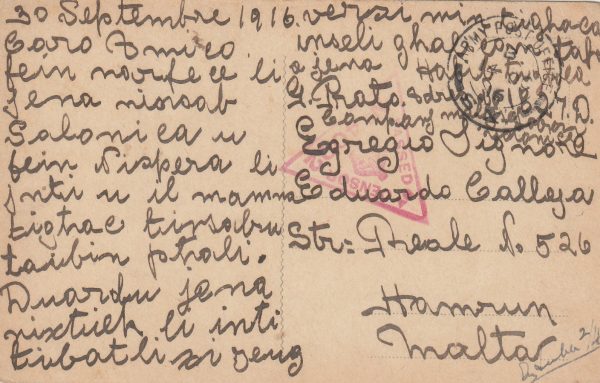 30 Septembre 1916.
Caro Amico
fein norfee li
jena nissab
Salonica u
fein nispera li
inti u il mamma
tighac tinsabu
taibin phali.
Duardu jena
nixtiek li inti
tibatli xi zeug
versi min tighac
inseli ghal
jena Habib
G. Prato
Company
Egregio Signor
Eduardo Calleja
Str: Reale N. 526
Hamrun
Malta
ARMY POST OFFICE
PASSED
CENSOR